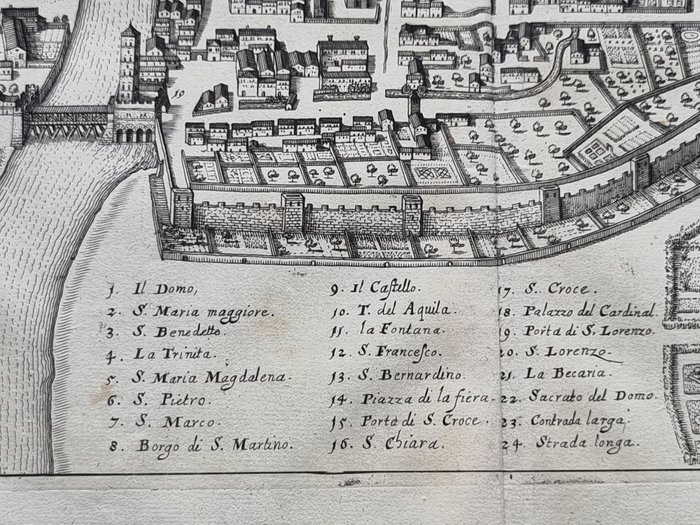 19
1 Il Domo,
2. S. Maria maggiore.
3. S. Benedetto.
4. La Trinita.
5. S. Maria Magdalena.
6. S. Pietro.
7. S. Marco.
8. Borgo di S. Martino.
9. Il Castello.
10. T. del Aquila.
11. la Fontana.
12. S. Francesco.
13. S. Bernardino.
14. Piazza di la fiera.
15. Porta di S. Croce.
16. S. Chiara.
17. S. Croce.
18. Palazzo del Cardinal.
19. Porta di S. Lorenzo.
20. S. Lorenzo.
21. La Becaria.
22. Sacrato del Domo.
23. Contrada larga.
24. Strada longa.